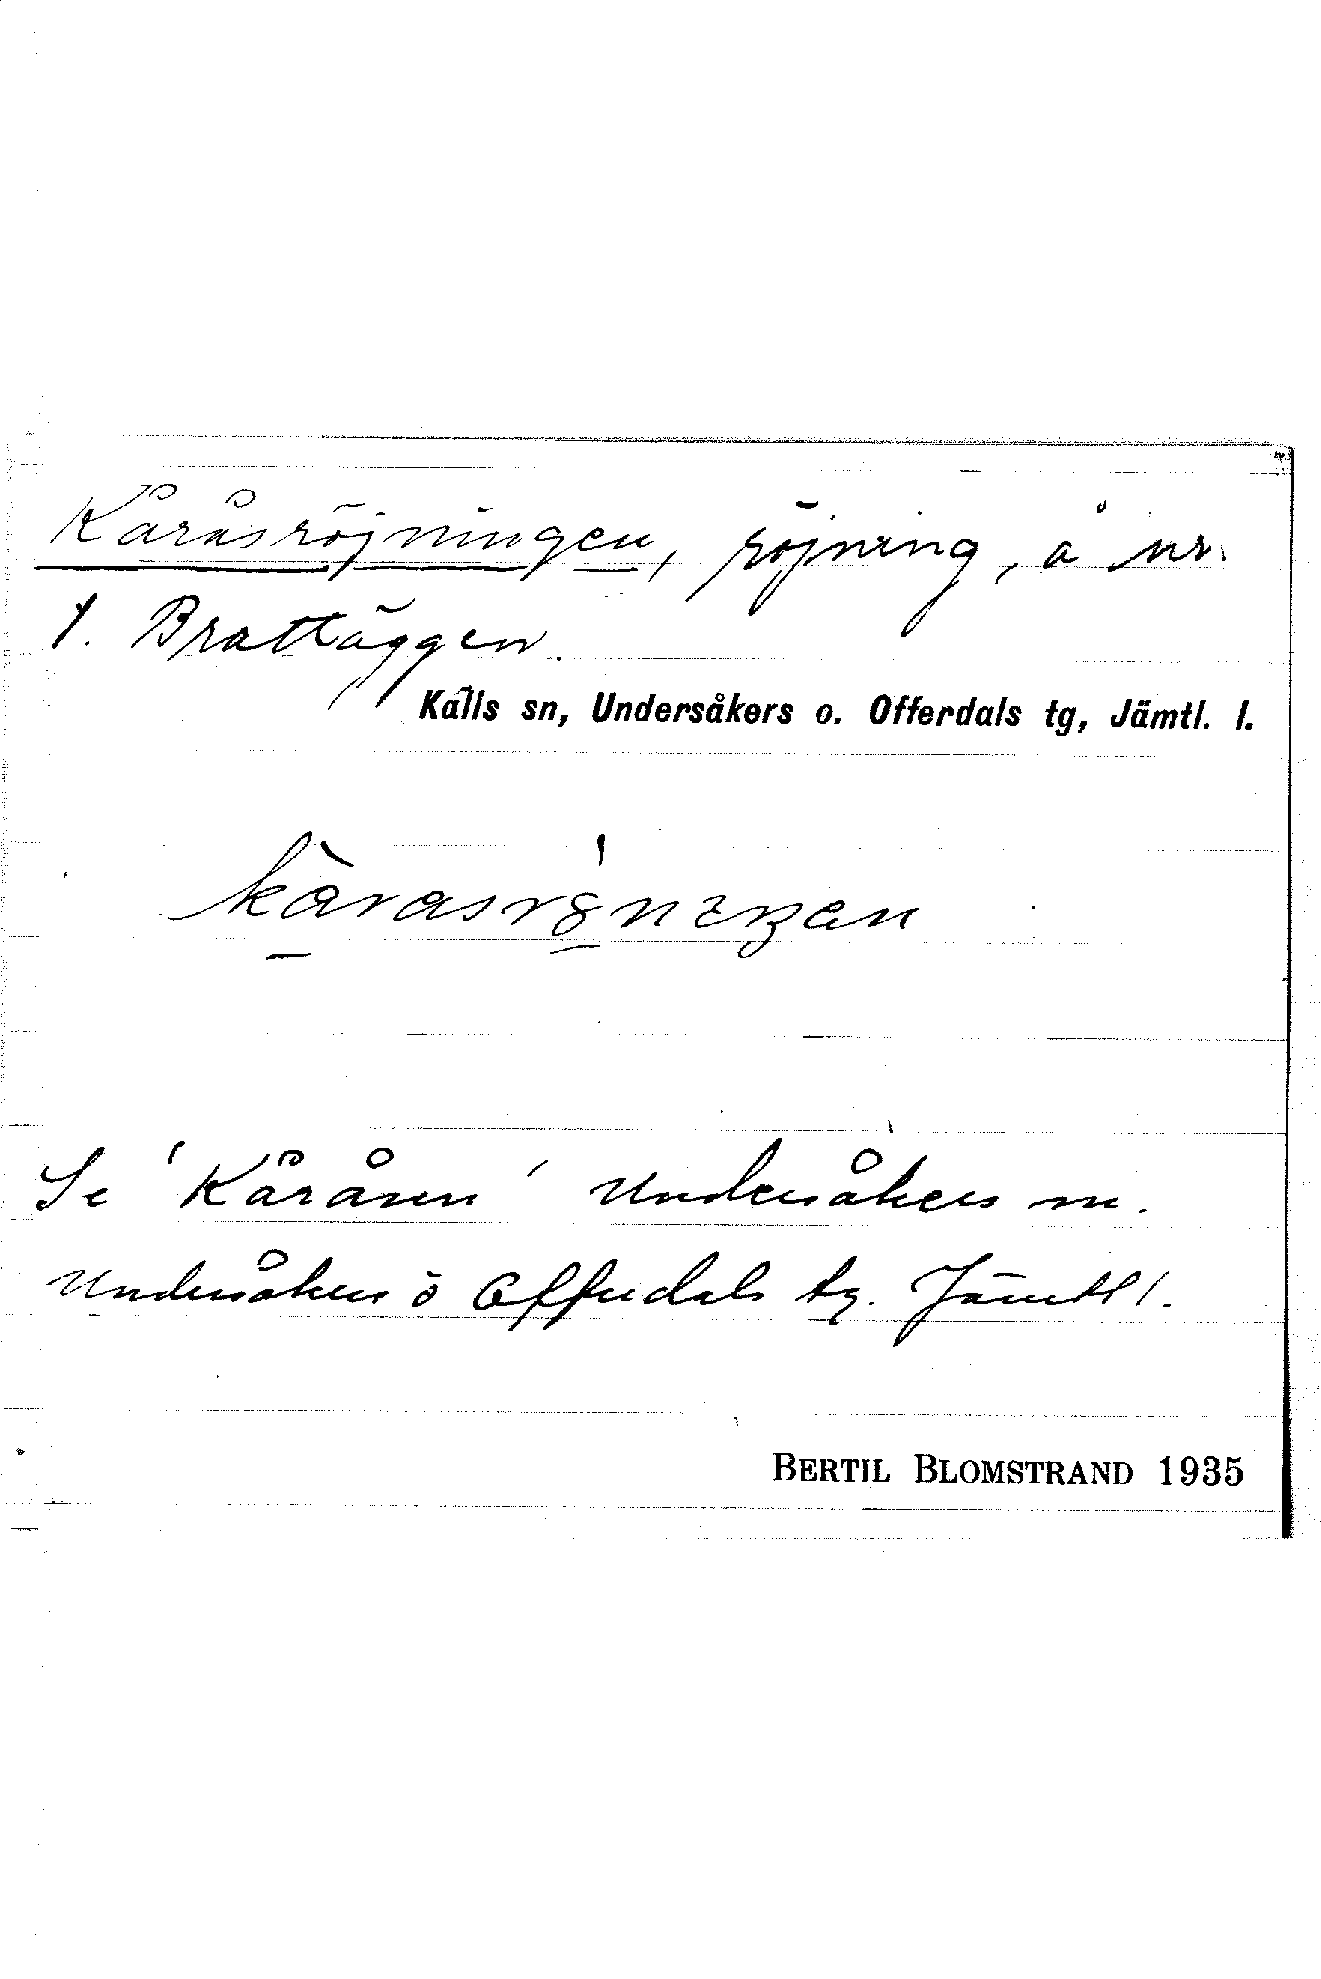 Kåråsröjningen, röjning, å nr.
1. Brattäggen.
Kalls sn, Undersåkers o. Offerdals tg, Jämtl. l.
Se 'Kåråsen' Undersåkers sn.
Undersåkers o Offerdals tg. Jämtl l.
BERTIL BLOMSTRAND 1935